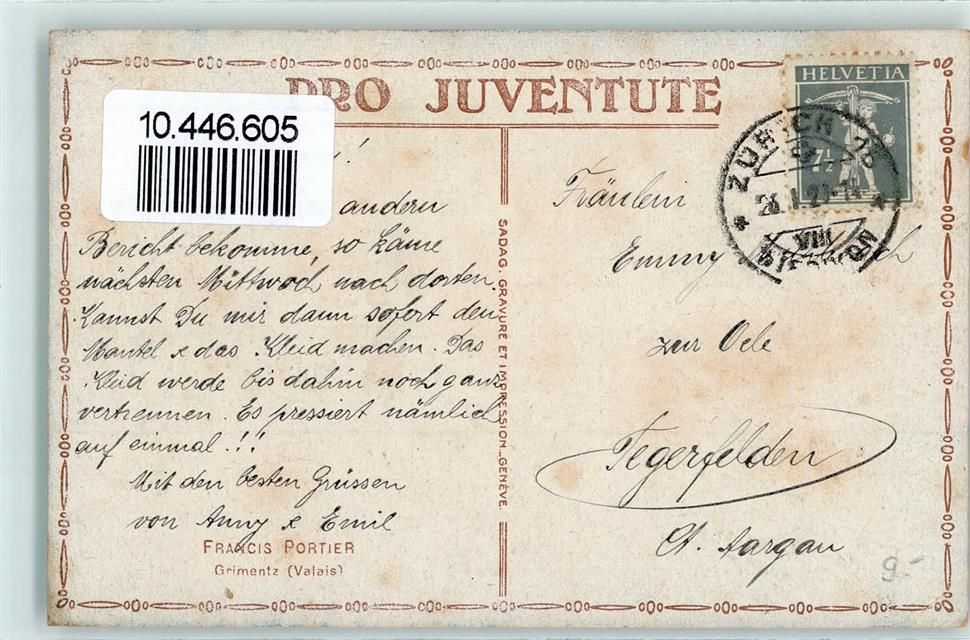 PRO JUVENTUTE
10.446.605
HELVETIA
7½
ZÜRICH
VIII
andern
Bericht bekomme, so käme
nächsten Mittwoch nach dorten,
Kannst Du mir dann sofort den
Mantel & das Kleid machen. Das
Kleid werde bis dahin noch ganz
vertrennen. Es pressiert nämlich
auf einmal!!!
Mit den besten Grüssen
von Anny & Emil
FRANCIS PORTIER
Grimentz (Valais)
SADAG. GRAVURE ET IMPRESSION_GENÈVE.
Fräulein
Emmy
zur Oele
Tegerfelden
Ct. Aargau
9.-